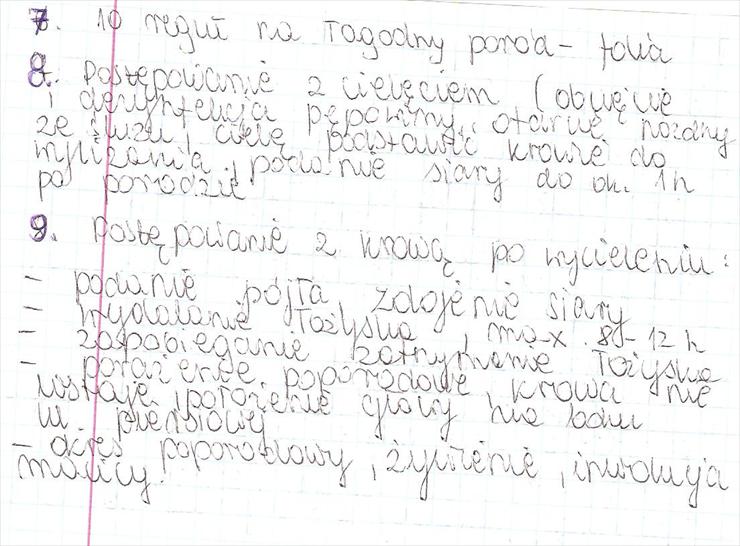 7. 10 reguł na łagodny poród - folia
8. Postępowanie z cielęciem (obcięcie
i dezynfekcja pępowiny, otarcie nozdrzy
ze śluzu, cielę podstawić krowie do
wylizania, podanie siary do ok. 1h
po porodzie
9. Postępowanie z krową po wycieleniu:
- podanie pójła zdojenie siary
- wydalanie łożyska, max. 8-12 h
- zapobieganie zatrzymanie łożyska
- porażenie poporodowe krowa nie
wstaje, położenie głowy na
w piersiowy
- okres poporodowy, żywienie, inwolucja
macicy.